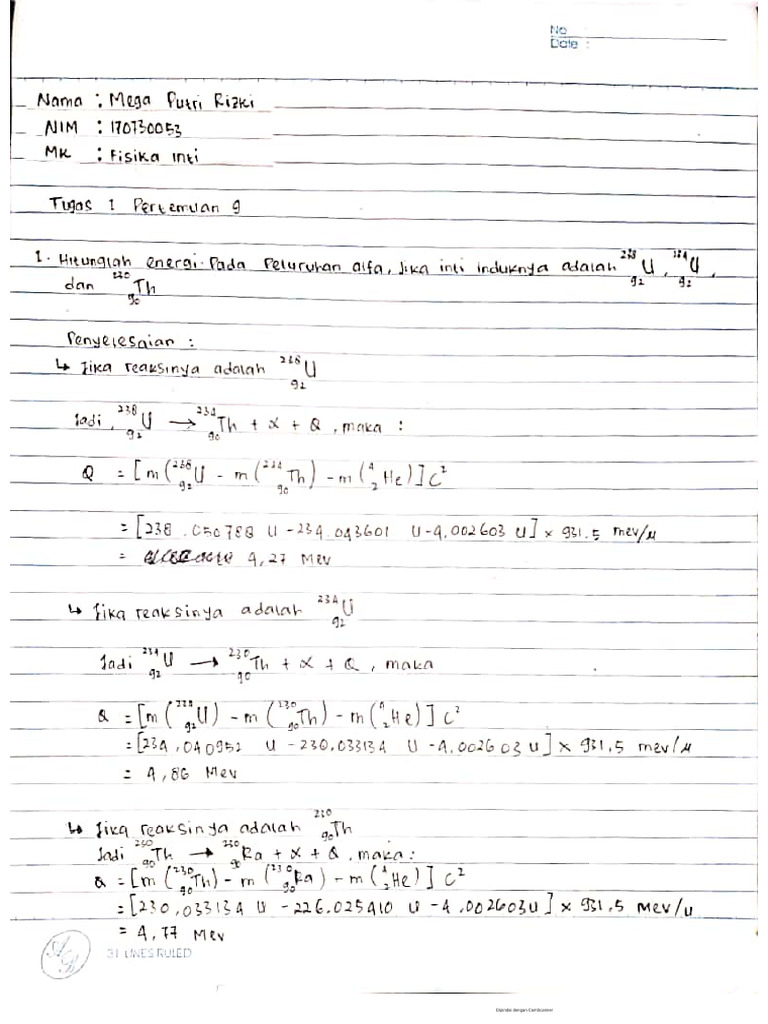 No
Date :
Nama : Mega Putri Rizki
NIM : 170730053
MK : Fisika inti
Tugas 1 Pertemuan 9
1. Hitunglah energi pada peluruhan alfa, jika inti induknya adalah ²³⁸₉₂U, ²³⁴₉₂U,
dan ²³⁰₉₀Th
Penyelesaian :
↳ Jika reaksinya adalah ²³⁸₉₂U
Jadi, ²³⁸₉₂U → ²³⁴₉₀Th + α + Q, maka :
Q = [m(²³⁸₉₂U - m(²³⁴₉₀Th) - m(⁴₂He)] C²
= [238.050788 U - 234.043601 U - 4,002603 U] × 931.5 mev/μ
= 4,27 Mev
↳ Jika reaksinya adalah ²³⁴₉₂U
Jadi ²³⁴₉₂U → ²³⁰₉₀Th + α + Q, maka
Q = [m(²³⁴₉₂U) - m(²³⁰₉₀Th) - m(⁴₂He)] C²
= [234,040952 U - 230,033134 U - 4,002603 U] × 931,5 mev/μ
= 4,86 Mev
↳ Jika reaksinya adalah ²³⁰₉₀Th
Jadi ²³⁰₉₀Th → ²³⁰Ra + α + Q, maka :
Q = [m(²³⁰₉₀Th) - m(²³⁰₉₀Ra) - m(⁴₂He)] C²
= [230,033134 U - 226,025410 U - 4,002603 U] × 931.5 mev/u
= 4,77 Mev
31 LINES RULED
Dipindai dengan CamScanner